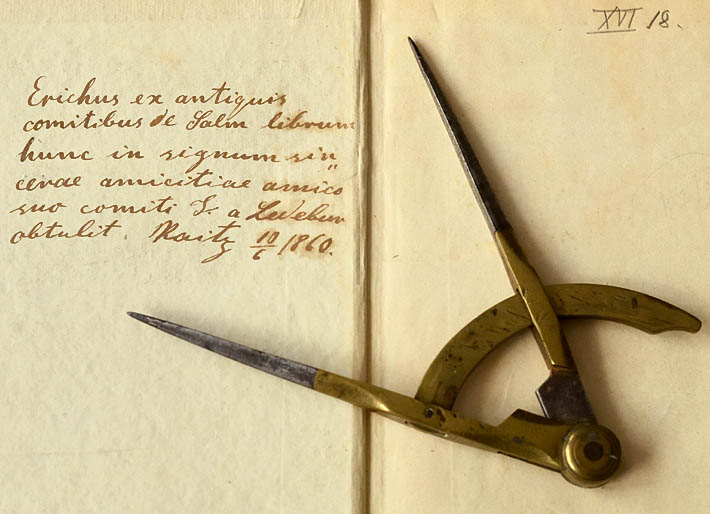 Erichus ex antiquis
comitibus de Salm librum
hunc in signum sin„
cerae amicitiae amico
suo comiti F. a Lützelau
obtulit. Raitz 10/6 1860.
XVI 18.